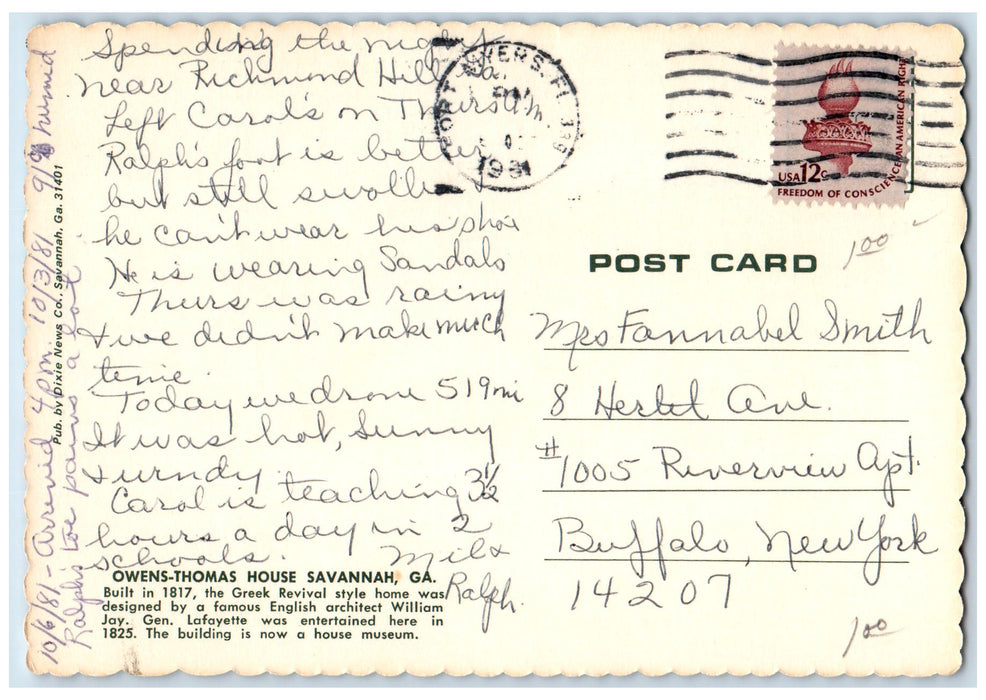 Spending the night
near Richmond Hill Ga.
Left Carol's on Thurs
Ralph's foot is better
but still swollen
he can't wear his shoe
He is wearing Sandals
Thurs was rainy
+ we didn't make much
time.
Today we drove 519 mi
It was hot, Sunny
+ windy.
Carol is teaching 3½
hours a day in 2
schools.
Mil +
Ralph.
10/6/81 - Arrived 4pm. 10/3/81 9/% humid
Ralph's toe pains a lot
Pub. by Dixie News Co., Savannah, Ga. 31401
OWENS-THOMAS HOUSE SAVANNAH, GA.
Built in 1817, the Greek Revival style home was
designed by a famous English architect William
Jay. Gen. Lafayette was entertained here in
1825. The building is now a house museum.
FORT MYERS, FL 339
PM
1981
USA 12c
FREEDOM OF CONSCIENCE AN AMERICAN RIGHT
POST CARD
100
Mrs Fannabel Smith
8 Hertel Ave.
#1005 Riverview Apt.
Buffalo, New York
14207
100